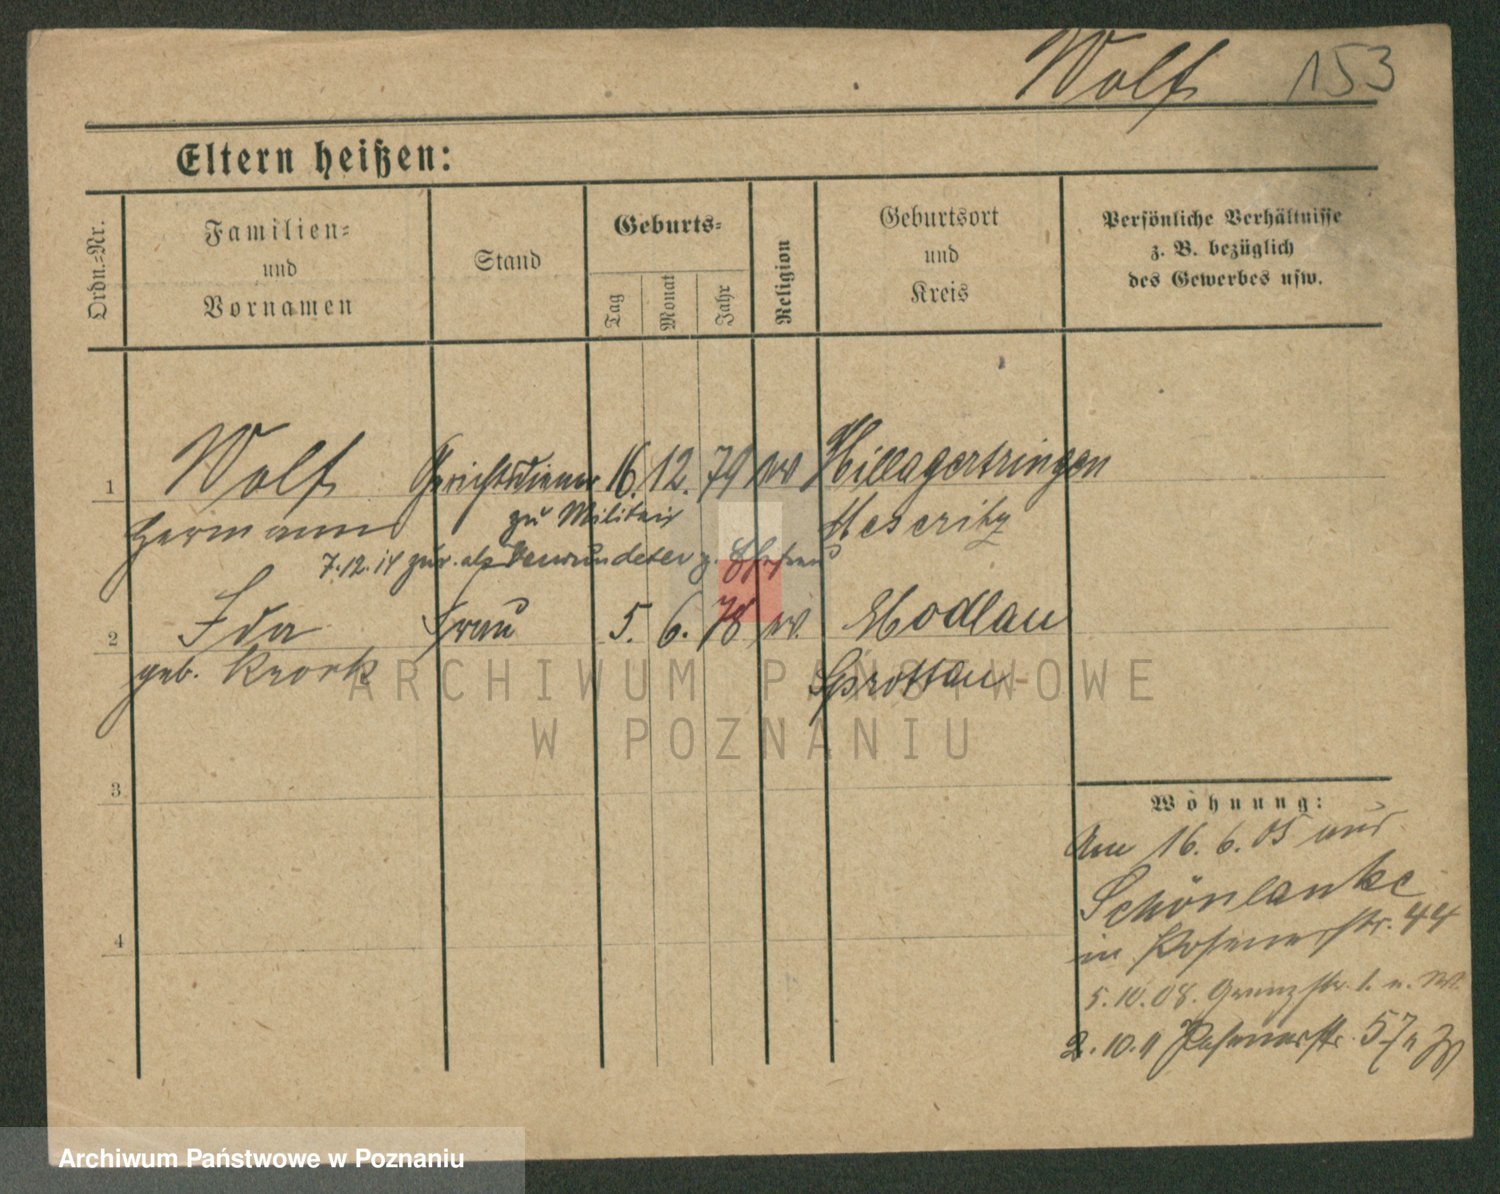 Wolf 153
Eltern heißen:
Ordn.-Nr.
Familien-
und
Vornamen
Stand
Geburts-
Tag
Monat
Jahr
Religion
Geburtsort
und
Kreis
Persönliche Verhältnisse
z. B. bezüglich
des Gewerbes usw.
1 Wolf Gerichtsdiener 16. 12. 79
Hermann zu Militair Meseritz
7.12.14 zur. als Verwundeter z. Ehefrau
2 Ida Frau 5. 6. 78 Modlau
geb. Sprottau
ARCHIWUM PAŃSTWOWE
W POZNANIU
3
4
Wohnung:
Am 16. 6. 05 aus
Schönlanke
in Posenerstr. 44
5.10.08. Grenzstr. 1.
2.10.11 Posenerstr. 57
Archiwum Państwowe w Poznaniu